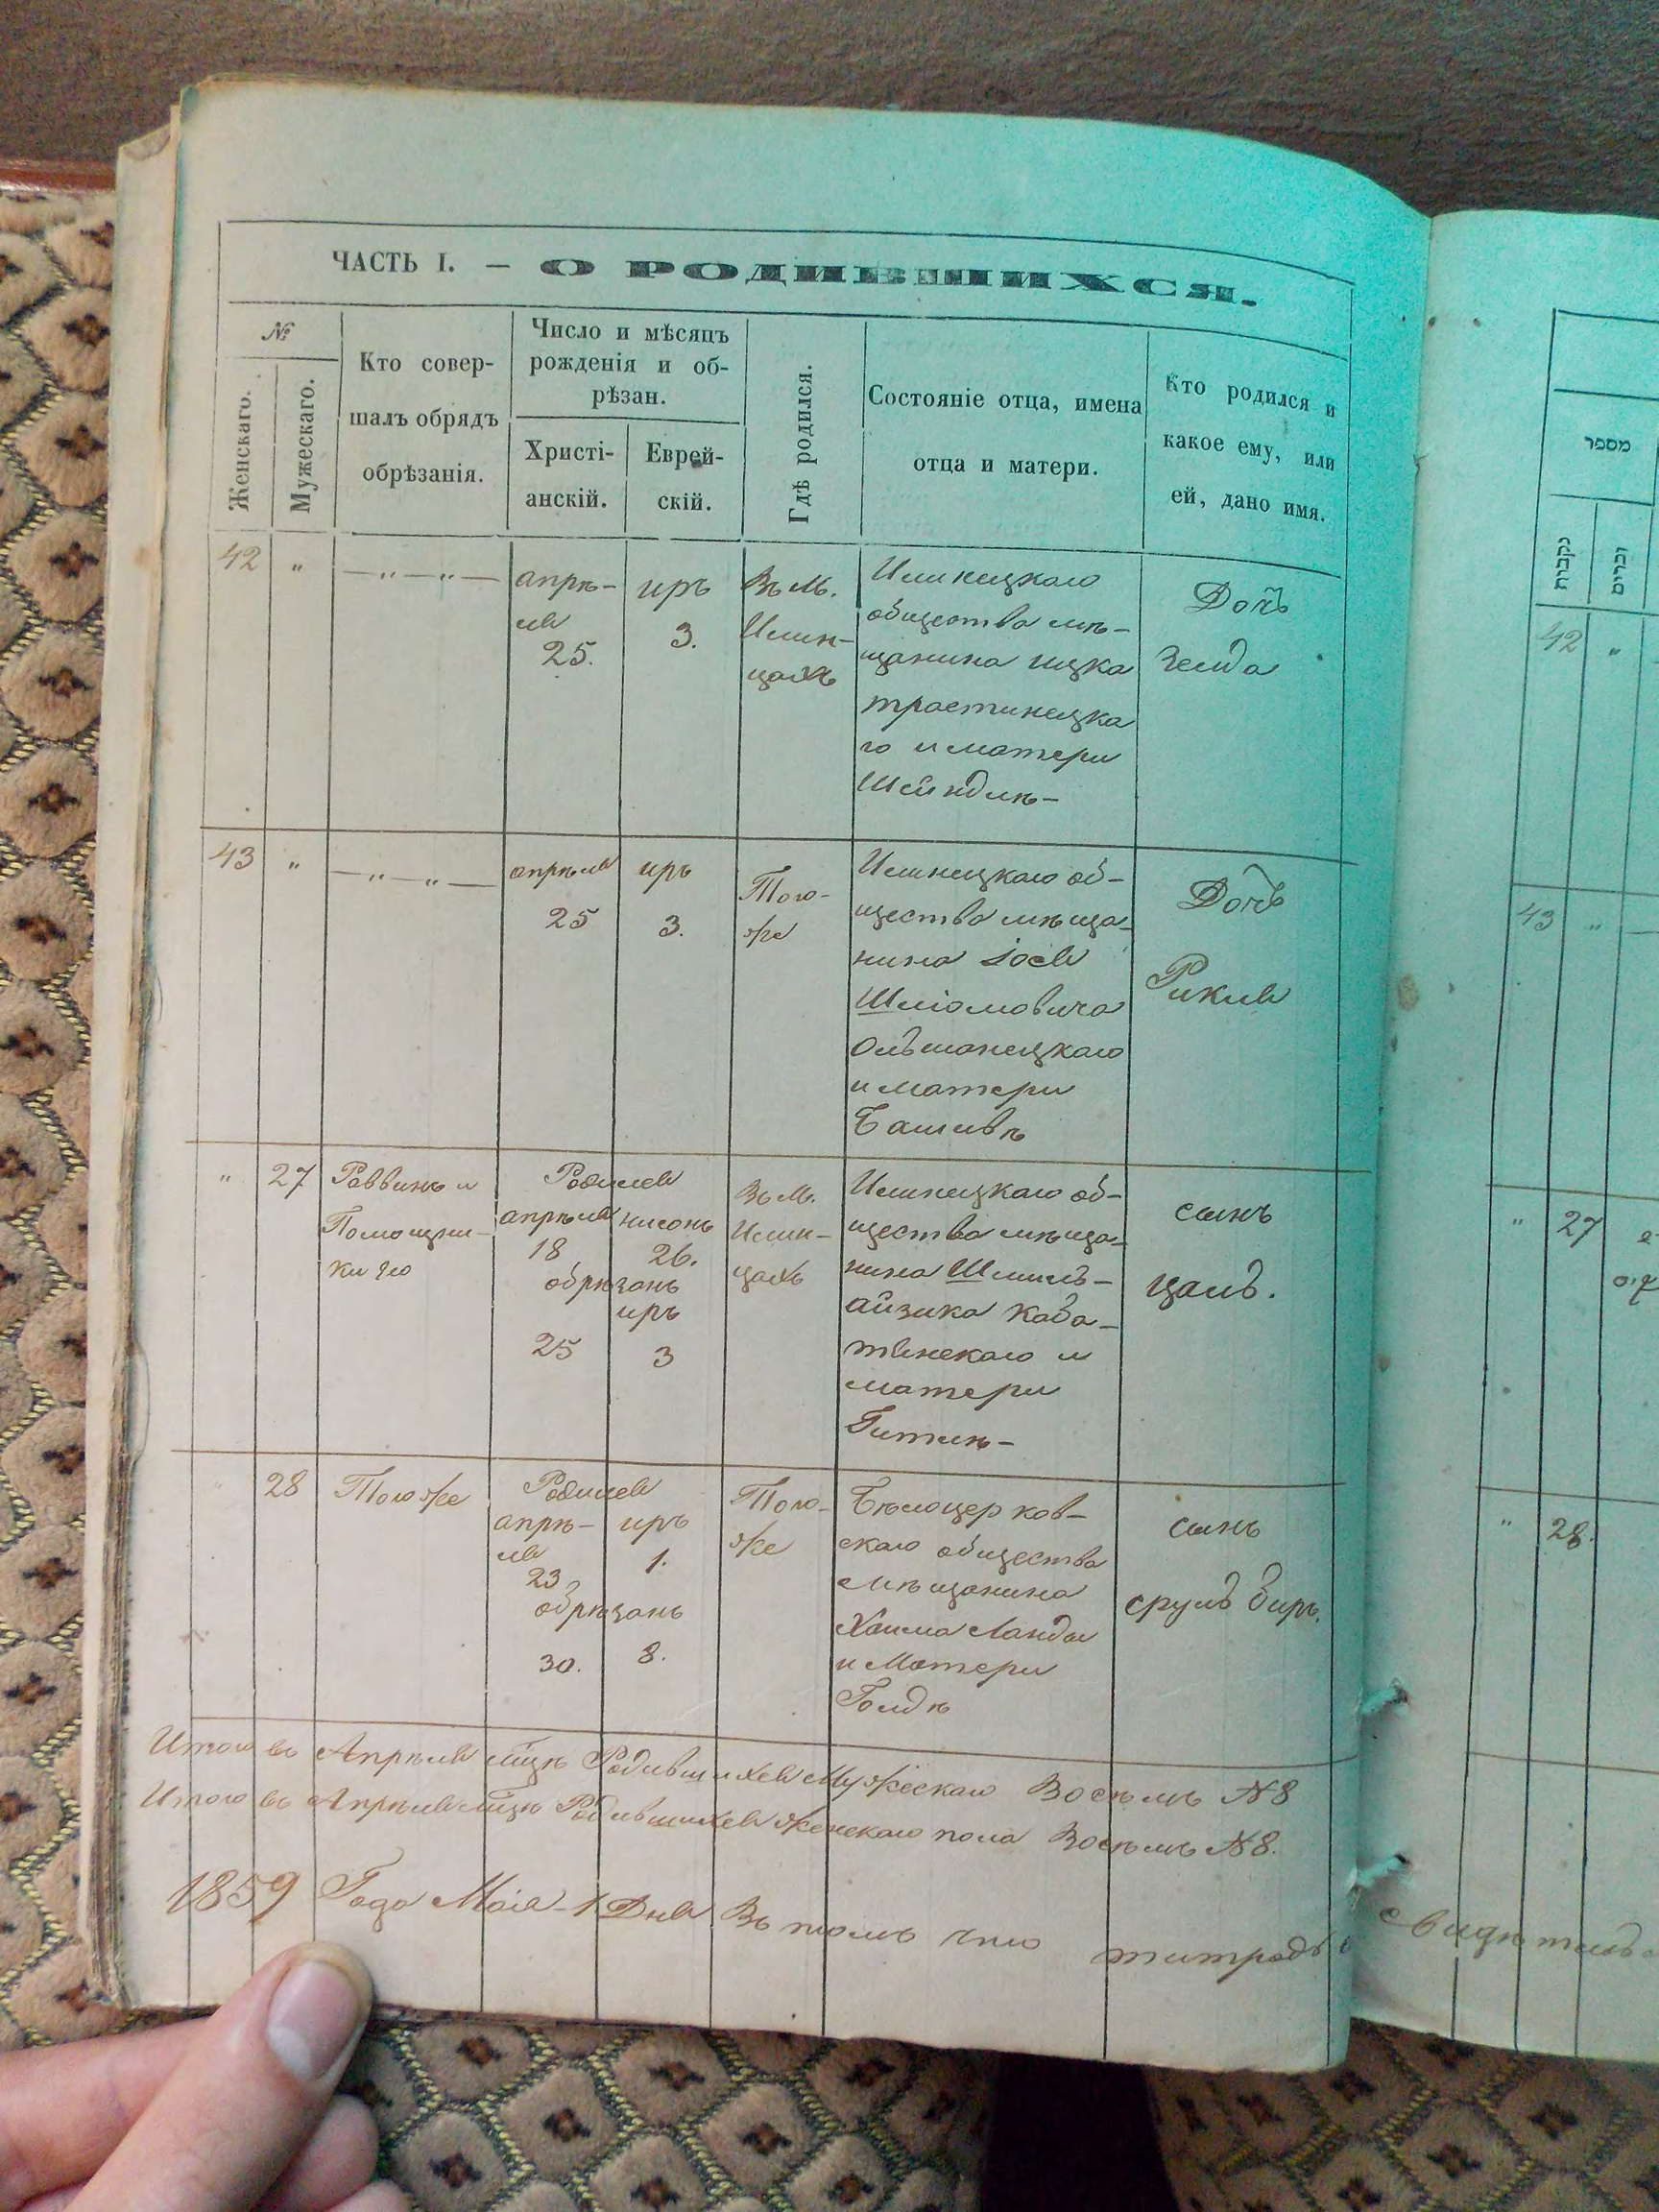 ЧАСТЬ I. — О РОДИВШИХСЯ.
№
Женскаго.
Мужескаго.
Кто совер-
шалъ обрядъ
обрѣзанія.
Число и мѣсяцъ
рожденія и об-
рѣзан.
Христі-
анскій.
Еврей-
скій.
Гдѣ родился.
Состояніе отца, имена
отца и матери.
Кто родился и
какое ему, или
ей, дано имя.
42
"
— " — " —
апрѣ-
ля
25.
иръ
3.
Въ М.
Илин-
цахъ
Илинецкаго
общества мѣ-
щанина ицка
трастинецка
го и матери
Шейндлѣ-
Дочъ
Зелда
43
"
— " — " —
апрѣля
25
иръ
3.
Того-
же
Илинецкаго об-
щества мѣща-
нина Іося
Шліомовича
Ольшанецкаго
и матери
Башивѣ
Дочъ
Рикля
"
27
Раввинъ и
Помощни-
ки его
Родился
апрѣля нисонъ
18 26.
обрѣзанъ
иръ
25 3
Въ М.
Илин-
цахъ
Илинецкаго об-
щества мѣща-
нина Шмиль-
айзика
и
матери
Гитлѣ-
сынъ
цаль.
28
Того же
Родился
апрѣ- иръ
ля 1.
23
обрѣзанъ
30. 8.
Того-
же
Бѣлоцерков-
скаго общества
мѣщанина
Хаима Ланды
и Матери
Голдѣ
сынъ
сруль беръ.
Итого въ Апрѣля мцѣ Родившихся Мужескаго Восѣмъ №8
Итого въ Апрѣля мцѣ Родившихся женскаго пола Восѣмъ №8.
1859 Года Мая 1 Дня Въ томъ что
מספר
נקבות
זכרים
42
"
43
"
"
27
"
28.